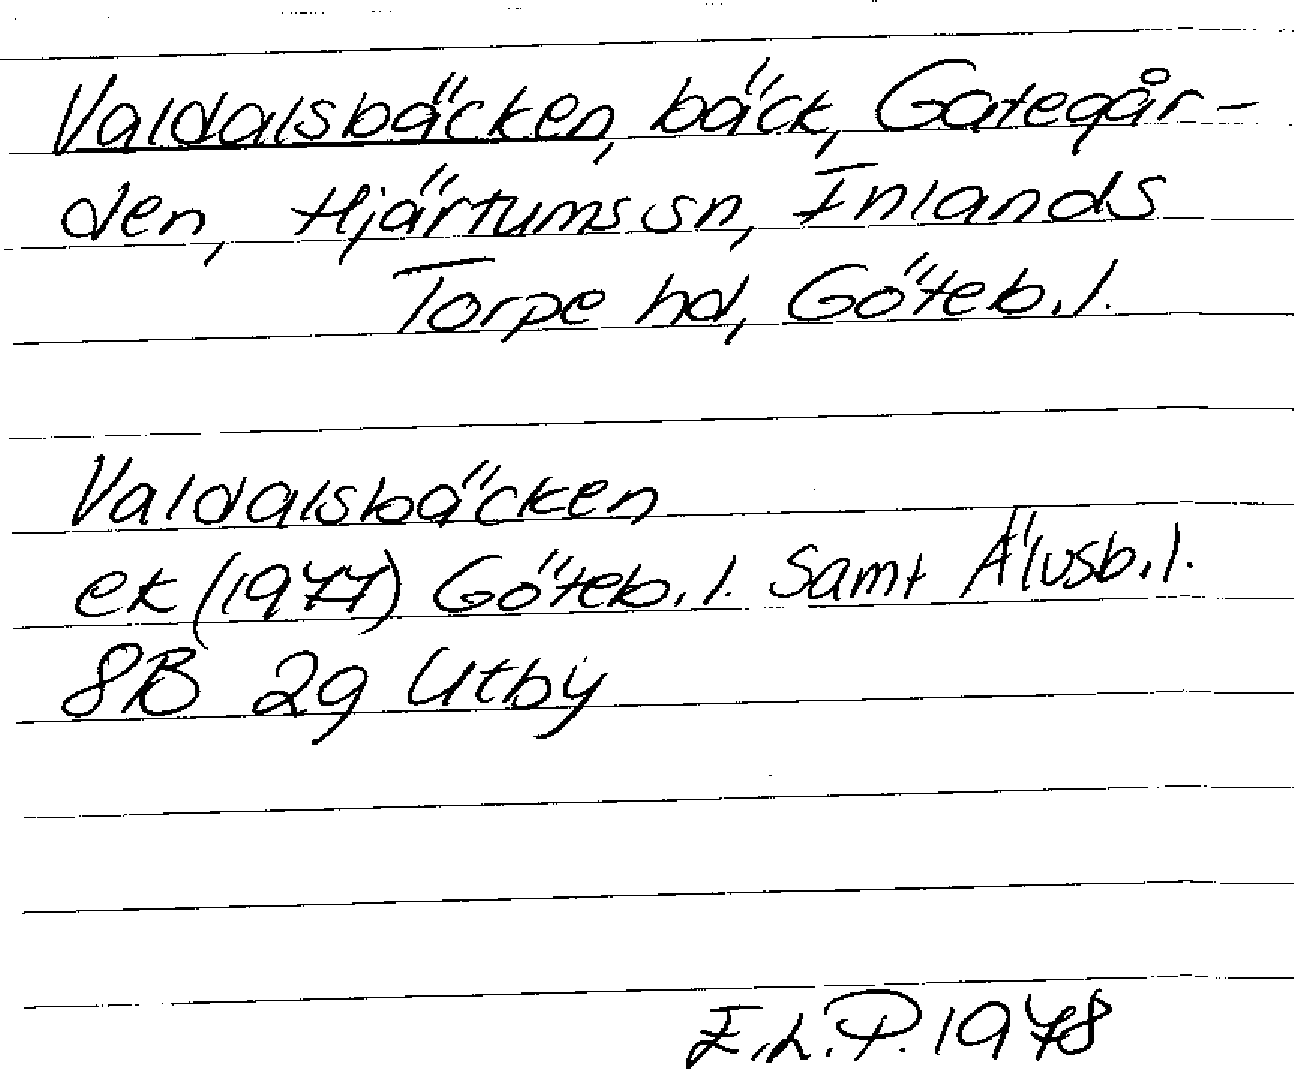 Valdalsbäcken, bäck, Gategår-
den, Hjärtums sn, Inlands
Torpe hd, Göteb.l.
Valdalsbäcken
ek (1977) Göteb.l. samt Älvsb.l.
8B 2g Utby
E.L.P. 1978